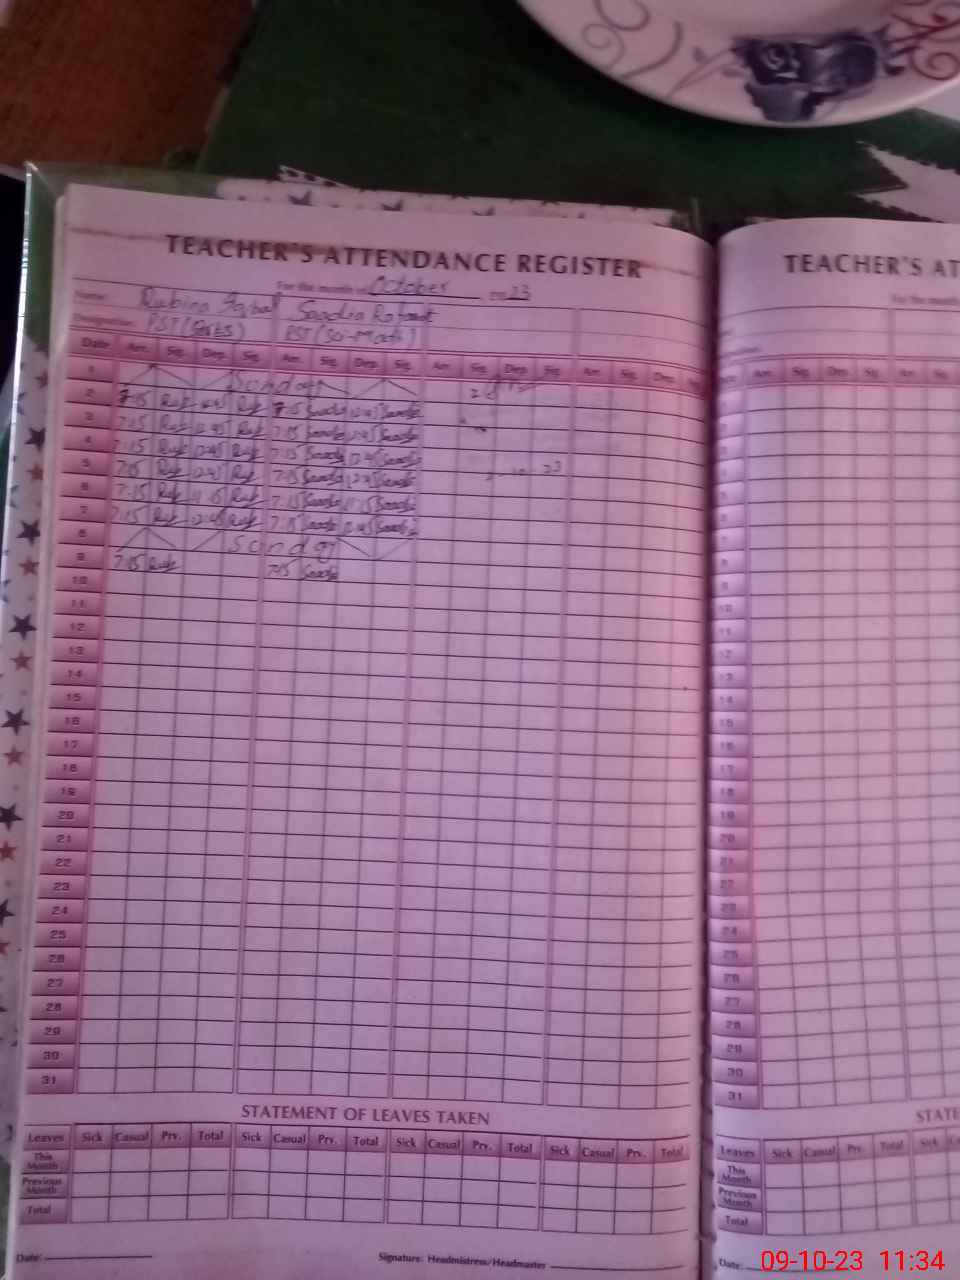 TEACHER'S ATTENDANCE REGISTER
For the month of October 2023
Name: Rubina Iqbal Saadia Rafaqat
Designation: PST (Arts) PST (Sci-Math)
Date Arr. Sig. Dep. Sig. Arr. Sig. Dep. Sig. Arr. Sig. Dep. Sig. Arr. Sig. Dep. Sig.
1 Sunday
2 7:15 Rub 12:45 Rub 7:15 Saadia 12:45 Saadia
3 7:15 Rub 12:45 Rub 7:15 Saadia 12:45 Saadia
4 7:15 Rub 12:45 Rub 7:15 Saadia 12:45 Saadia
5 7:15 Rub 12:45 Rub 7:15 Saadia 12:45 Saadia
6 7:15 Rub 11:15 Rub 7:15 Saadia 11:15 Saadia
7 7:15 Rub 12:45 Rub 7:15 Saadia 12:45 Saadia
8 Sunday
9 7:15 Rub 7:15 Saadia
10
11
12
13
14
15
16
17
18
19
20
21
22
23
24
25
26
27
28
29
30
31
STATEMENT OF LEAVES TAKEN
Leaves Sick Casual Prv. Total Sick Casual Prv. Total Sick Casual Prv. Total Sick Casual Prv. Total
This Month
Previous Month
Total
Date: Signature: Headmistress/Headmaster
TEACHER'S AT
For the month
Arr. Sig. Dep. Sig. Arr. Sig.
10
11
12
13
14
15
16
17
18
19
20
21
22
23
24
25
26
27
28
29
30
31
STATE
Leaves Sick Casual Prv. Total Sick
This Month
Previous Month
Total
Date:
09-10-23 11:34